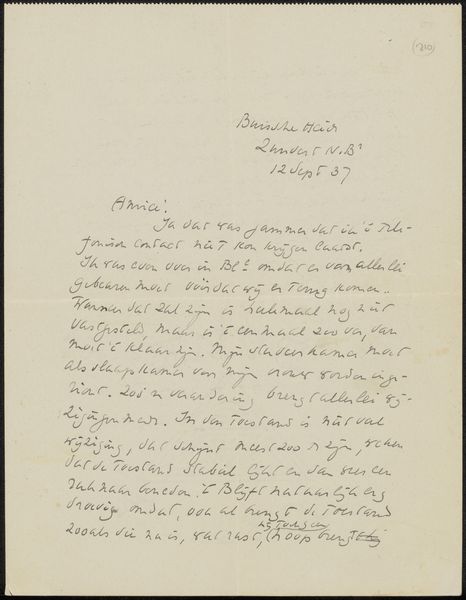 (210)
Buissche Heide
Zundert N.Br
12 Sept 37
Amice!
Ja dat was jammer dat ik 't tele-
fonisch contact niet kon krijgen laatst.
Ik was even over in Bl. omdat er van allerlei
gebeuren moet vóórdat wij er terug komen.
Wanneer dat zal zijn is helemaal nog niet
vastgesteld, maar is 't eenmaal zoo ver, dan
moet 't klaar zijn. Mijn studeerkamer moet
als slaapkamer van mijn vrouw worden inge-
richt. Zoo'n verandering brengt allerlei wij-
zigingen mede. In den toestand is niet veel
wijziging, dat schijnt meest zoo te zijn, weken
dat de toestand stabiel lijkt en dan weer een
ruk naar beneden. 't Blijft natuurlijk erg
droevig omdat, ook al brengt de toestand
zooals die nu is, wat rust, hoop brengt